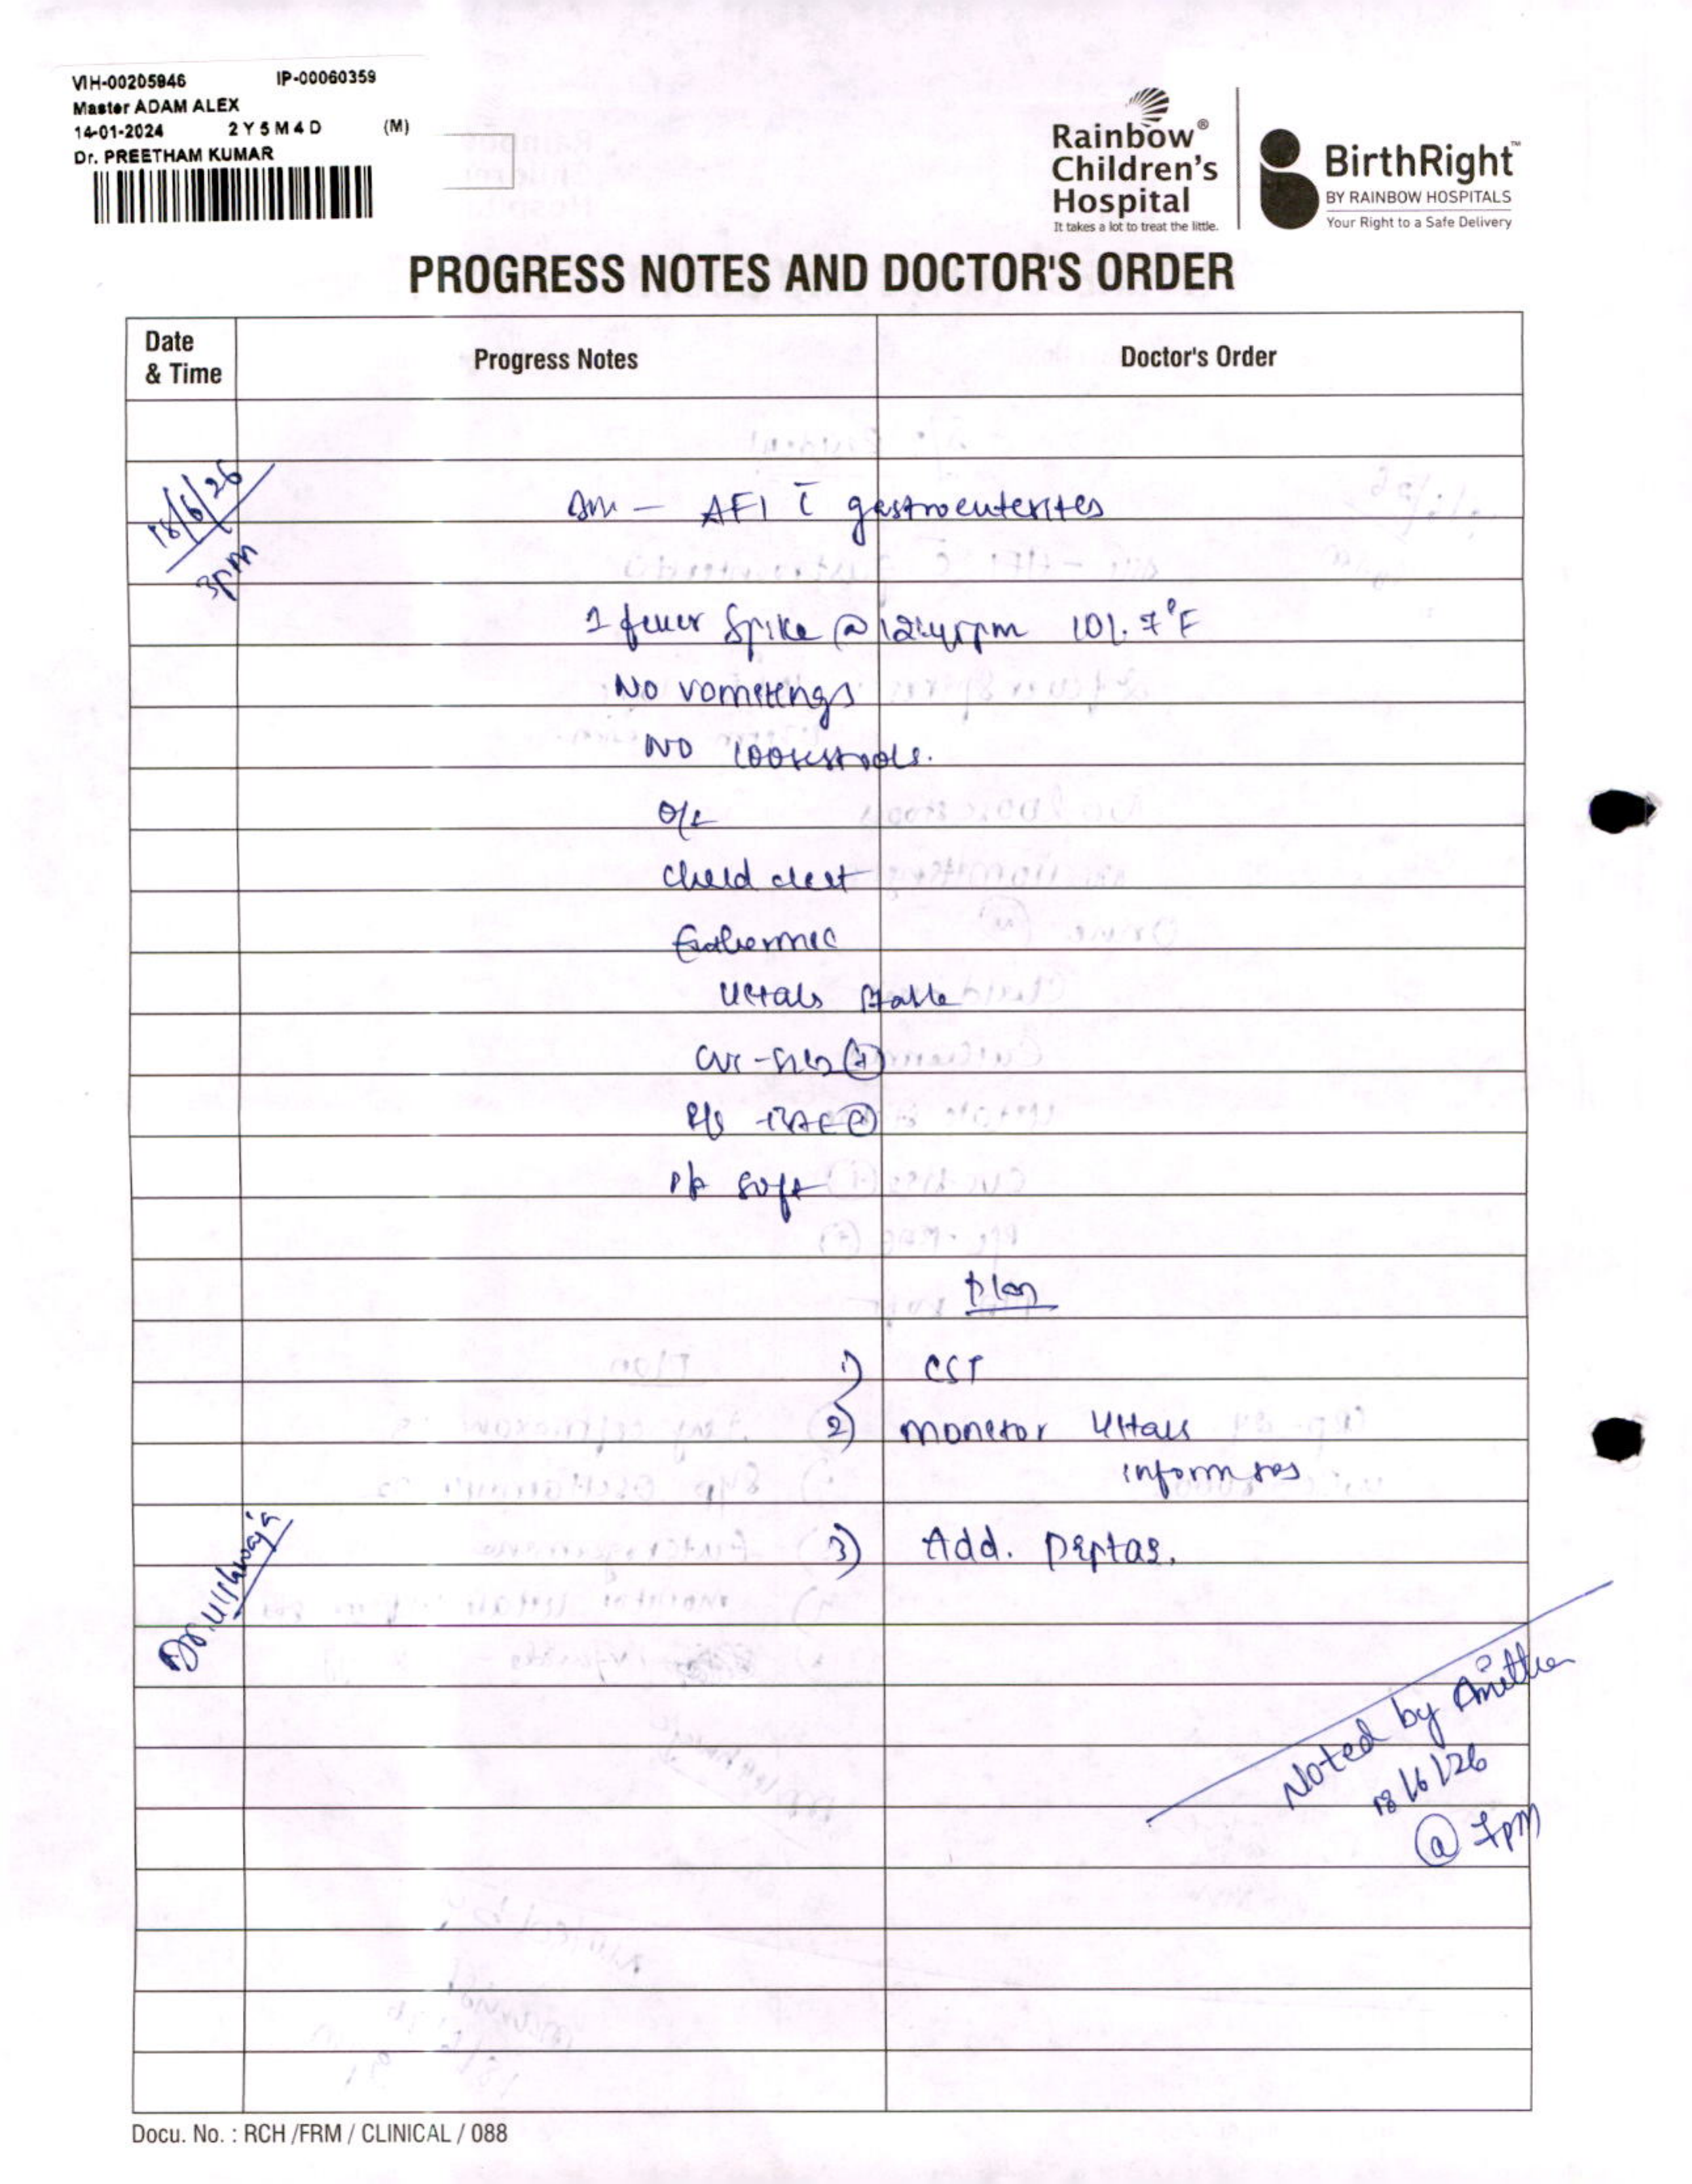 VIH-00205946 IP-00060359
Master ADAM ALEX
14-01-2024 2Y5M4D (M)
Dr. PREETHAM KUMAR
Rainbow®
Children's
Hospital
It takes a lot to treat the little.
BirthRight™
BY RAINBOW HOSPITALS
Your Right to a Safe Delivery
PROGRESS NOTES AND DOCTOR'S ORDER
Date
& Time
Progress Notes
Doctor's Order
18/6/26
3pm
AFI c̄ gastroenterites
1 fever spike @ 12:45pm 101.7°F
No vomitings
NO loosestools.
O/E
child alert
Euthermic
vitals stable
CVS - S1S2 (+)
R/S - BAE (+)
P/A soft
Plan
1) CST
2) monitor vitals
inform sos
3) Add. Piptaz.
Dr. Vishwaja
Noted by Anitha
18/6/26
@ 7pm
Docu. No. : RCH /FRM / CLINICAL / 088